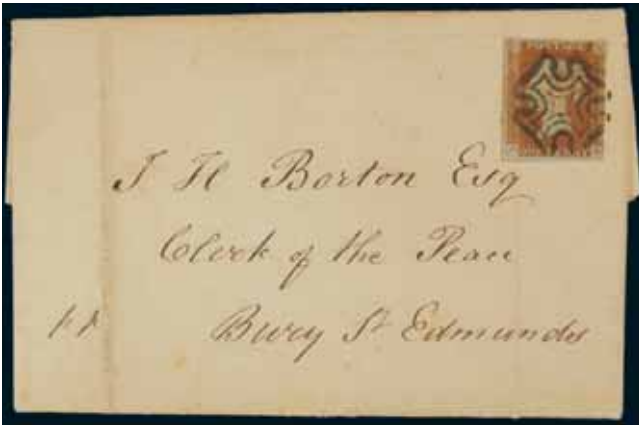 POSTAGE
J H Borton Esq
Clerk of the Peace
Bury St Edmunds